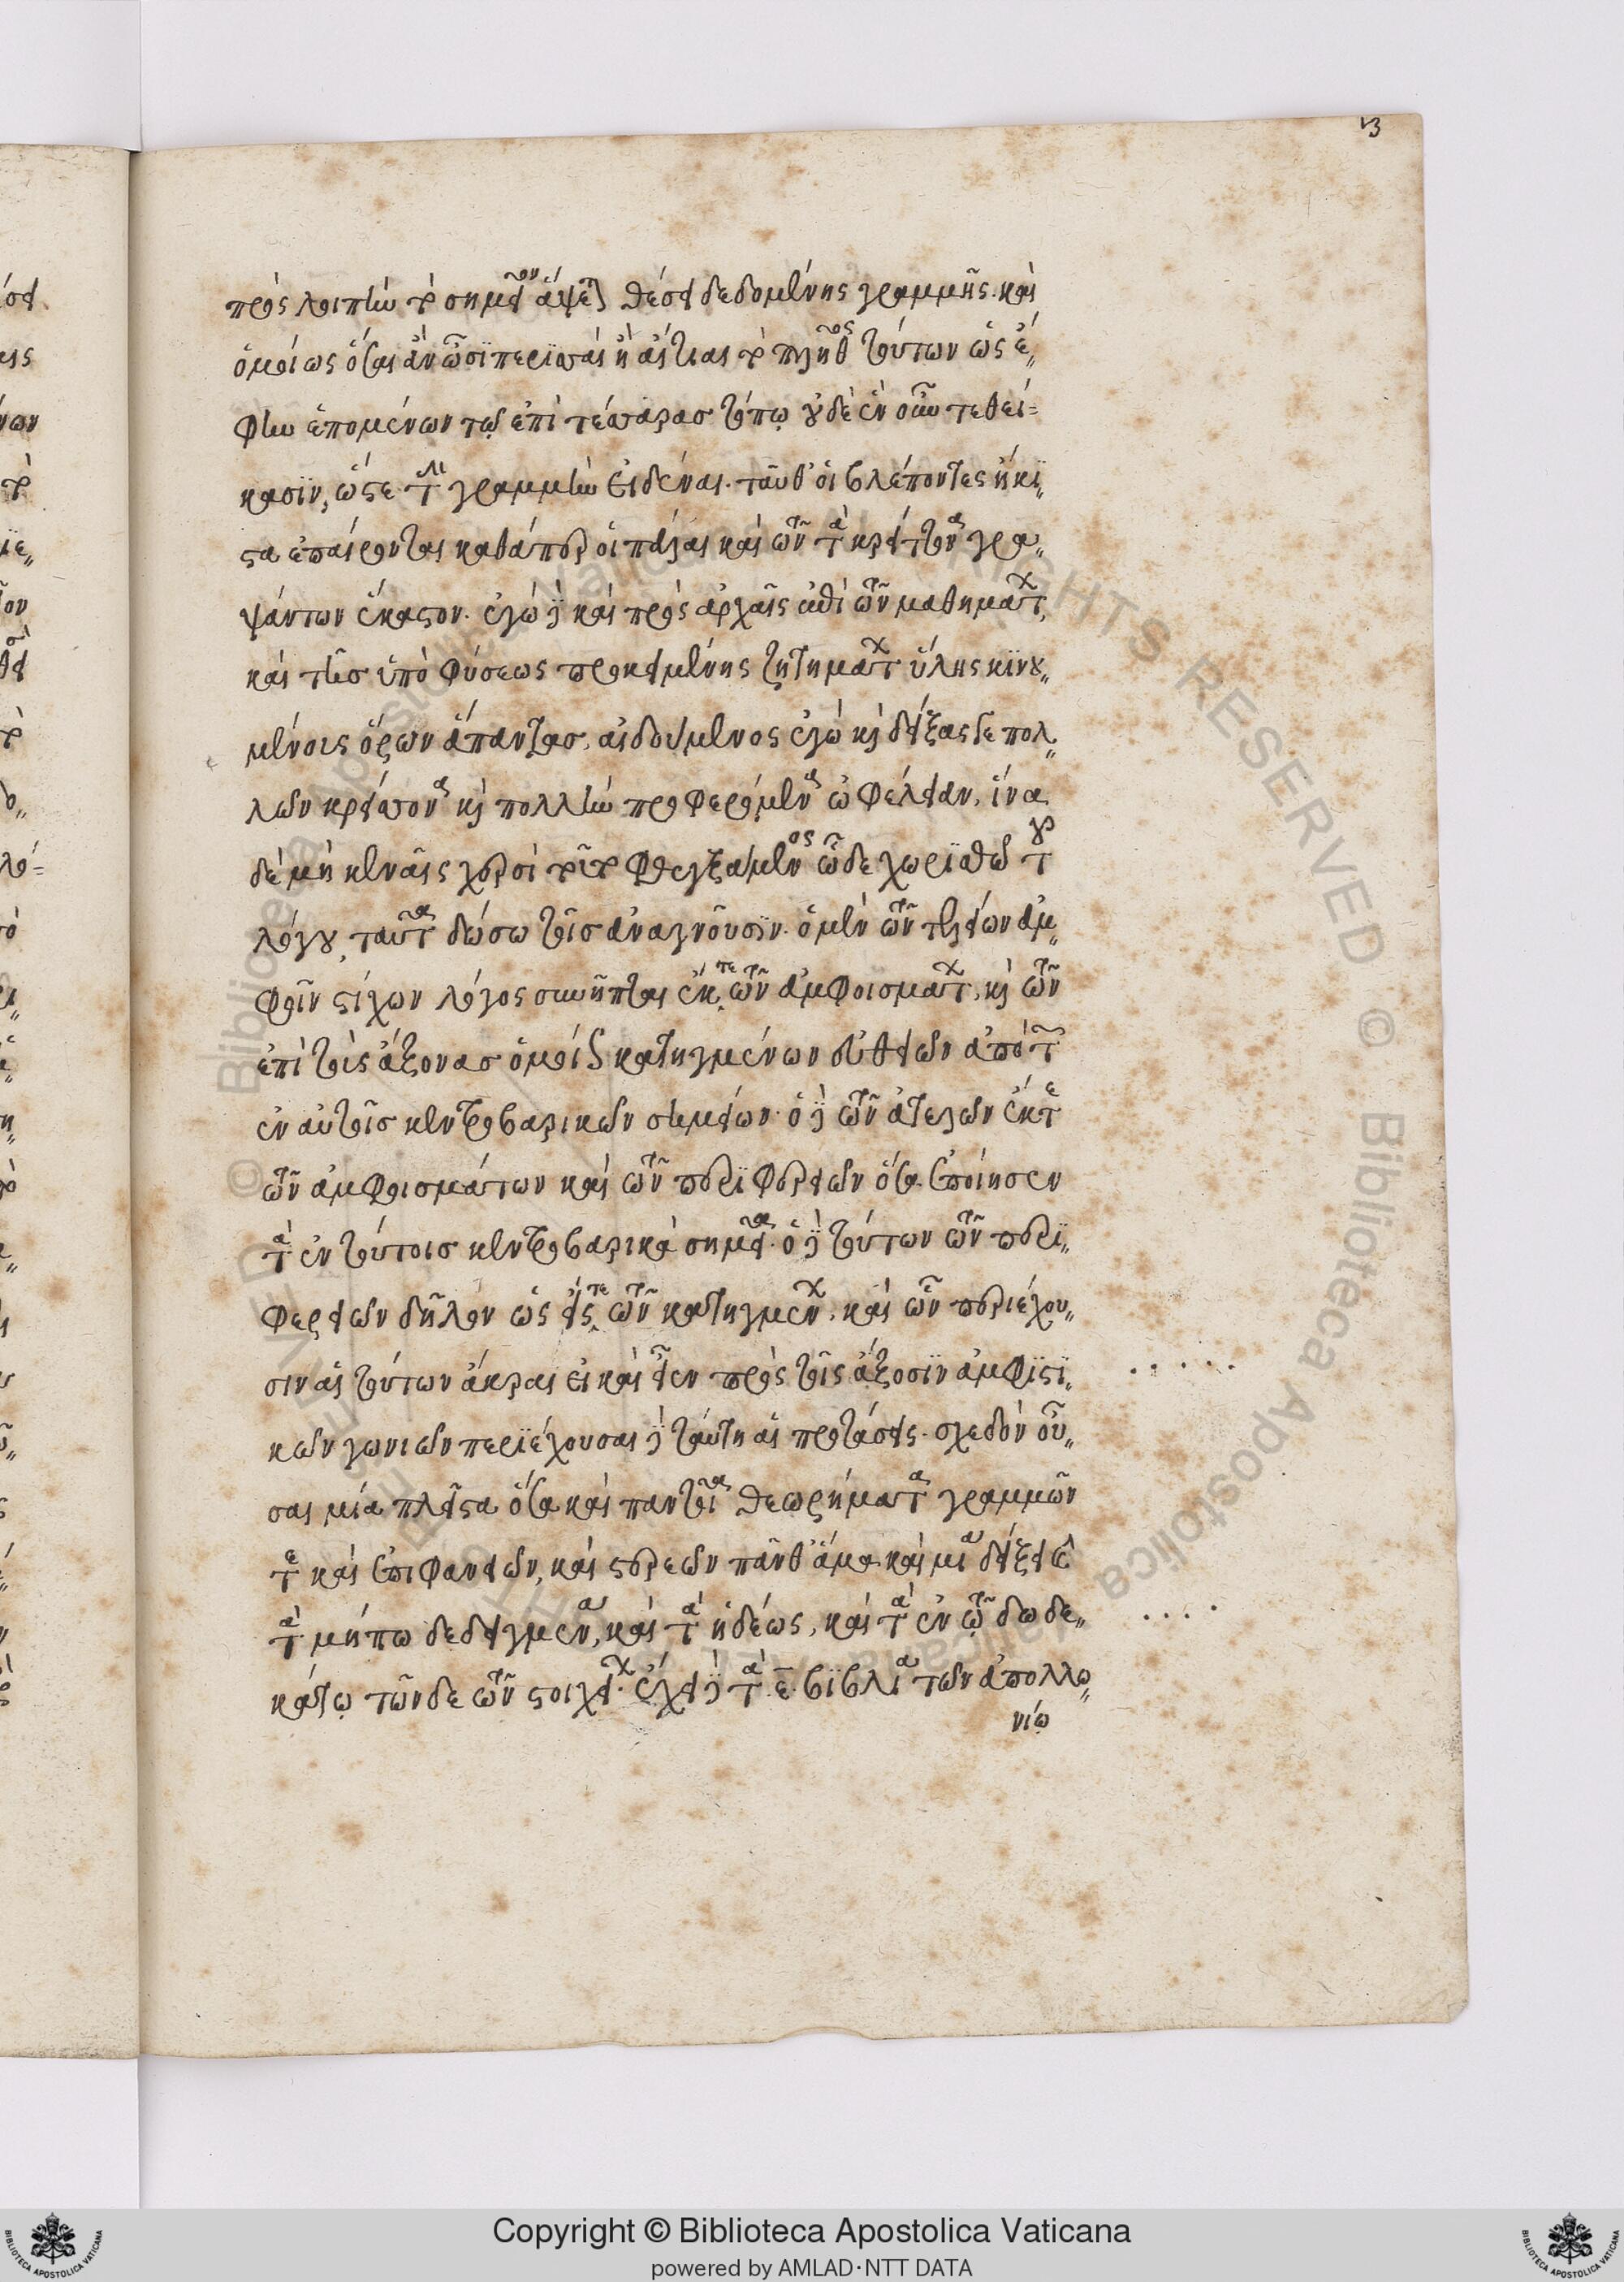 13
πρὸς λοιπὴν τὸ σημεῖον ἅψεται θέσει δεδομένης γραμμῆς. καὶ
ὁμοίως ὅσαι ἂν ὦσιν περισσαὶ ἢ ἄρτιαι τὸ πλῆθος τούτων ὡς ἔ„
φην ἑπομένων τῷ ἐπὶ τέσσαρας τόπῳ οὐδὲ ἓν οὕτω τεθεί=
κασιν, ὥστε τὴν γραμμὴν εἰδέναι. ταῦθ' οἱ βλέποντες ἥκι„
στα ἐπαίρονται καθάπερ οἱ πάλαι καὶ τῶν τὰ κρείττονα γρα„
ψάντων ἕκαστον. ἐγὼ δὲ καὶ πρὸς ἀρχαῖς ἔτι τῶν μαθημάτων,
καὶ τῆς ὑπὸ φύσεως προκειμένης ζητημάτων ὕλης κινου„
μένοις ὁρῶν ἅπαντας, αἰδούμενος ἐγὼ καὶ δείξας γε πολ„
λῶν κρείσσονα καὶ πολλὴν προφερόμενα ὠφέλειαν, ἵνα
δὲ μὴ κεναῖς χερσὶ τοῦτο φθεγξάμενος ὧδε χωρισθῶ τοῦ
λόγου, ταῦτα δώσω τοῖς ἀναγνοῦσιν. ὁ μὲν τῶν τελείων ἀμ„
φοιστίχων λόγος συνῆπται ἔκ τε τῶν ἀμφοισμάτων, καὶ τῶν
ἐπὶ τοὺς ἄξονας ὁμοίως κατηγμένων εὐθειῶν ἀπὸ τῶν
ἐν αὐτοῖς κεντροβαρικῶν σημείων. ὁ δὲ τῶν ἀτελῶν ἔκ τε
τῶν ἀμφοισμάτων καὶ τῶν περιφερειῶν ὅσα ἐποίησεν
τὰ ἐν τούτοις κεντροβαρικὰ σημεῖα. ὁ δὲ τούτων τῶν περι„
φερειῶν δῆλον ὡς εἴς τε τῶν κατηγμένων. καὶ ὧν περιέχου„
σιν αἱ τούτων ἄκραι εἰ καὶ εἶεν πρὸς τοῖς ἄξοσιν ἀμφιστι„
κῶν γωνιῶν περιέχουσαι δὲ ταύτη αἱ προτάσεις. σχεδὸν οὖ„
σαι μία πλεῖστα ὅσα καὶ παντοῖα θεωρήματα γραμμῶν
τε καὶ ἐπιφανειῶν, καὶ στερεῶν πάνθ' ἅμα καὶ μιᾷ δείξει καὶ
τὰ μήπω δεδειγμένα, καὶ τὰ ἡδέως, καὶ τὰ ἐν τῷ δωδε„
κάτῳ τῶνδε τῶν στοιχείων. ἔχει δὲ τὰ ε̄. βιβλία τῶν ἀπολλω„
νίῳ
Copyright © Biblioteca Apostolica Vaticana
powered by AMLAD·NTT DATA